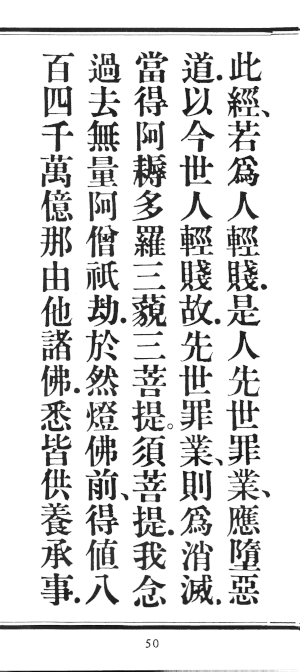 此經、若爲人輕賤.是人先世罪業、應墮惡
道.以今世人輕賤故.先世罪業、則爲消滅.
當得阿耨多羅三藐三菩提。須菩提.我念
過去無量阿僧祇劫.於然燈佛前、得値八
百四千萬億那由他諸佛.悉皆供養承事.
50